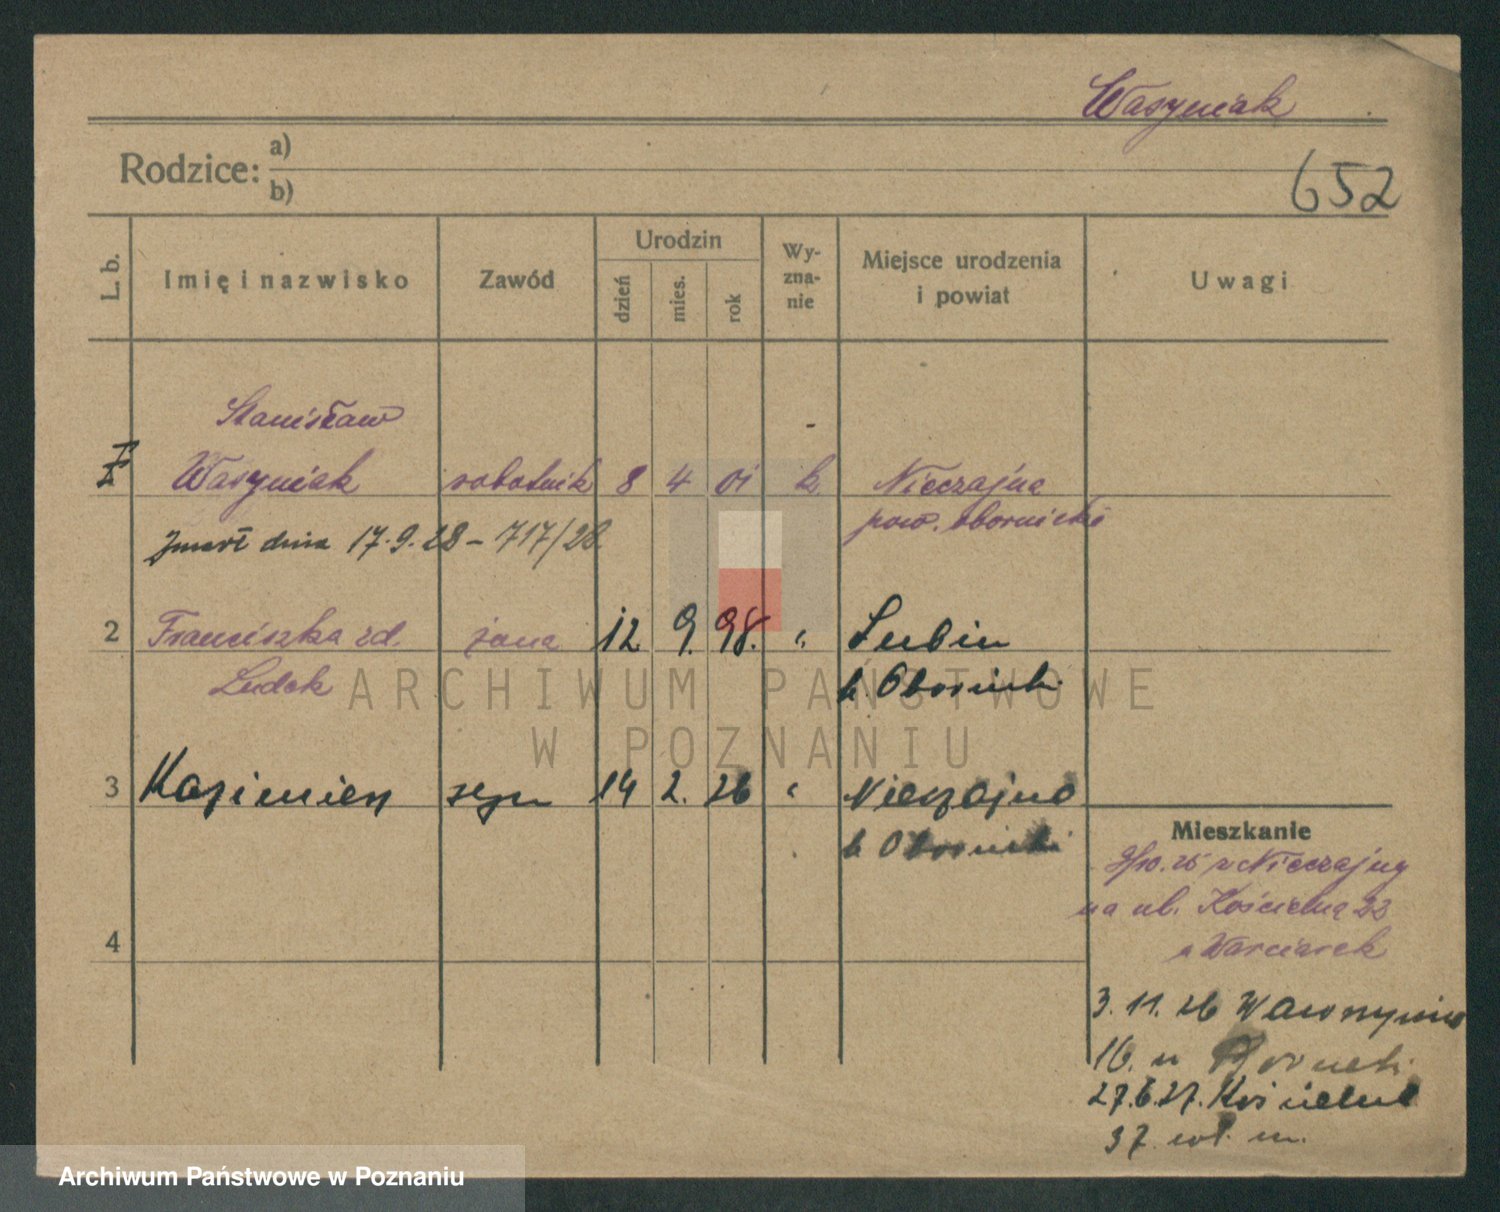 Waszyniak
Rodzice: a)
b)
652
L. b.
Imię i nazwisko
Zawód
Urodzin
dzień
mies.
rok
Wy-
zna-
nie
Miejsce urodzenia
i powiat
Uwagi
Stanisław
Waszyniak robotnik 8 4 01 k. Nieczajna
pow. obornicki
Zmarł dnia 17.9.28 – 717/28
2 Franciszka zd. żona 12. 9. 98. " Lubin
Ludek
p. Obornicki
ARCHIWUM PAŃSTWOWE
W POZNANIU
3 Kazimierz syn 14 2. 26 " Nieczajna
p. Obornicki
4
Mieszkanie
z Nieczajny
na ul. Kościelną 23
u
3. 11. 26 Wawrzyńca
16. u
27.6.27. Kościelna
37. wł. m.
Archiwum Państwowe w Poznaniu